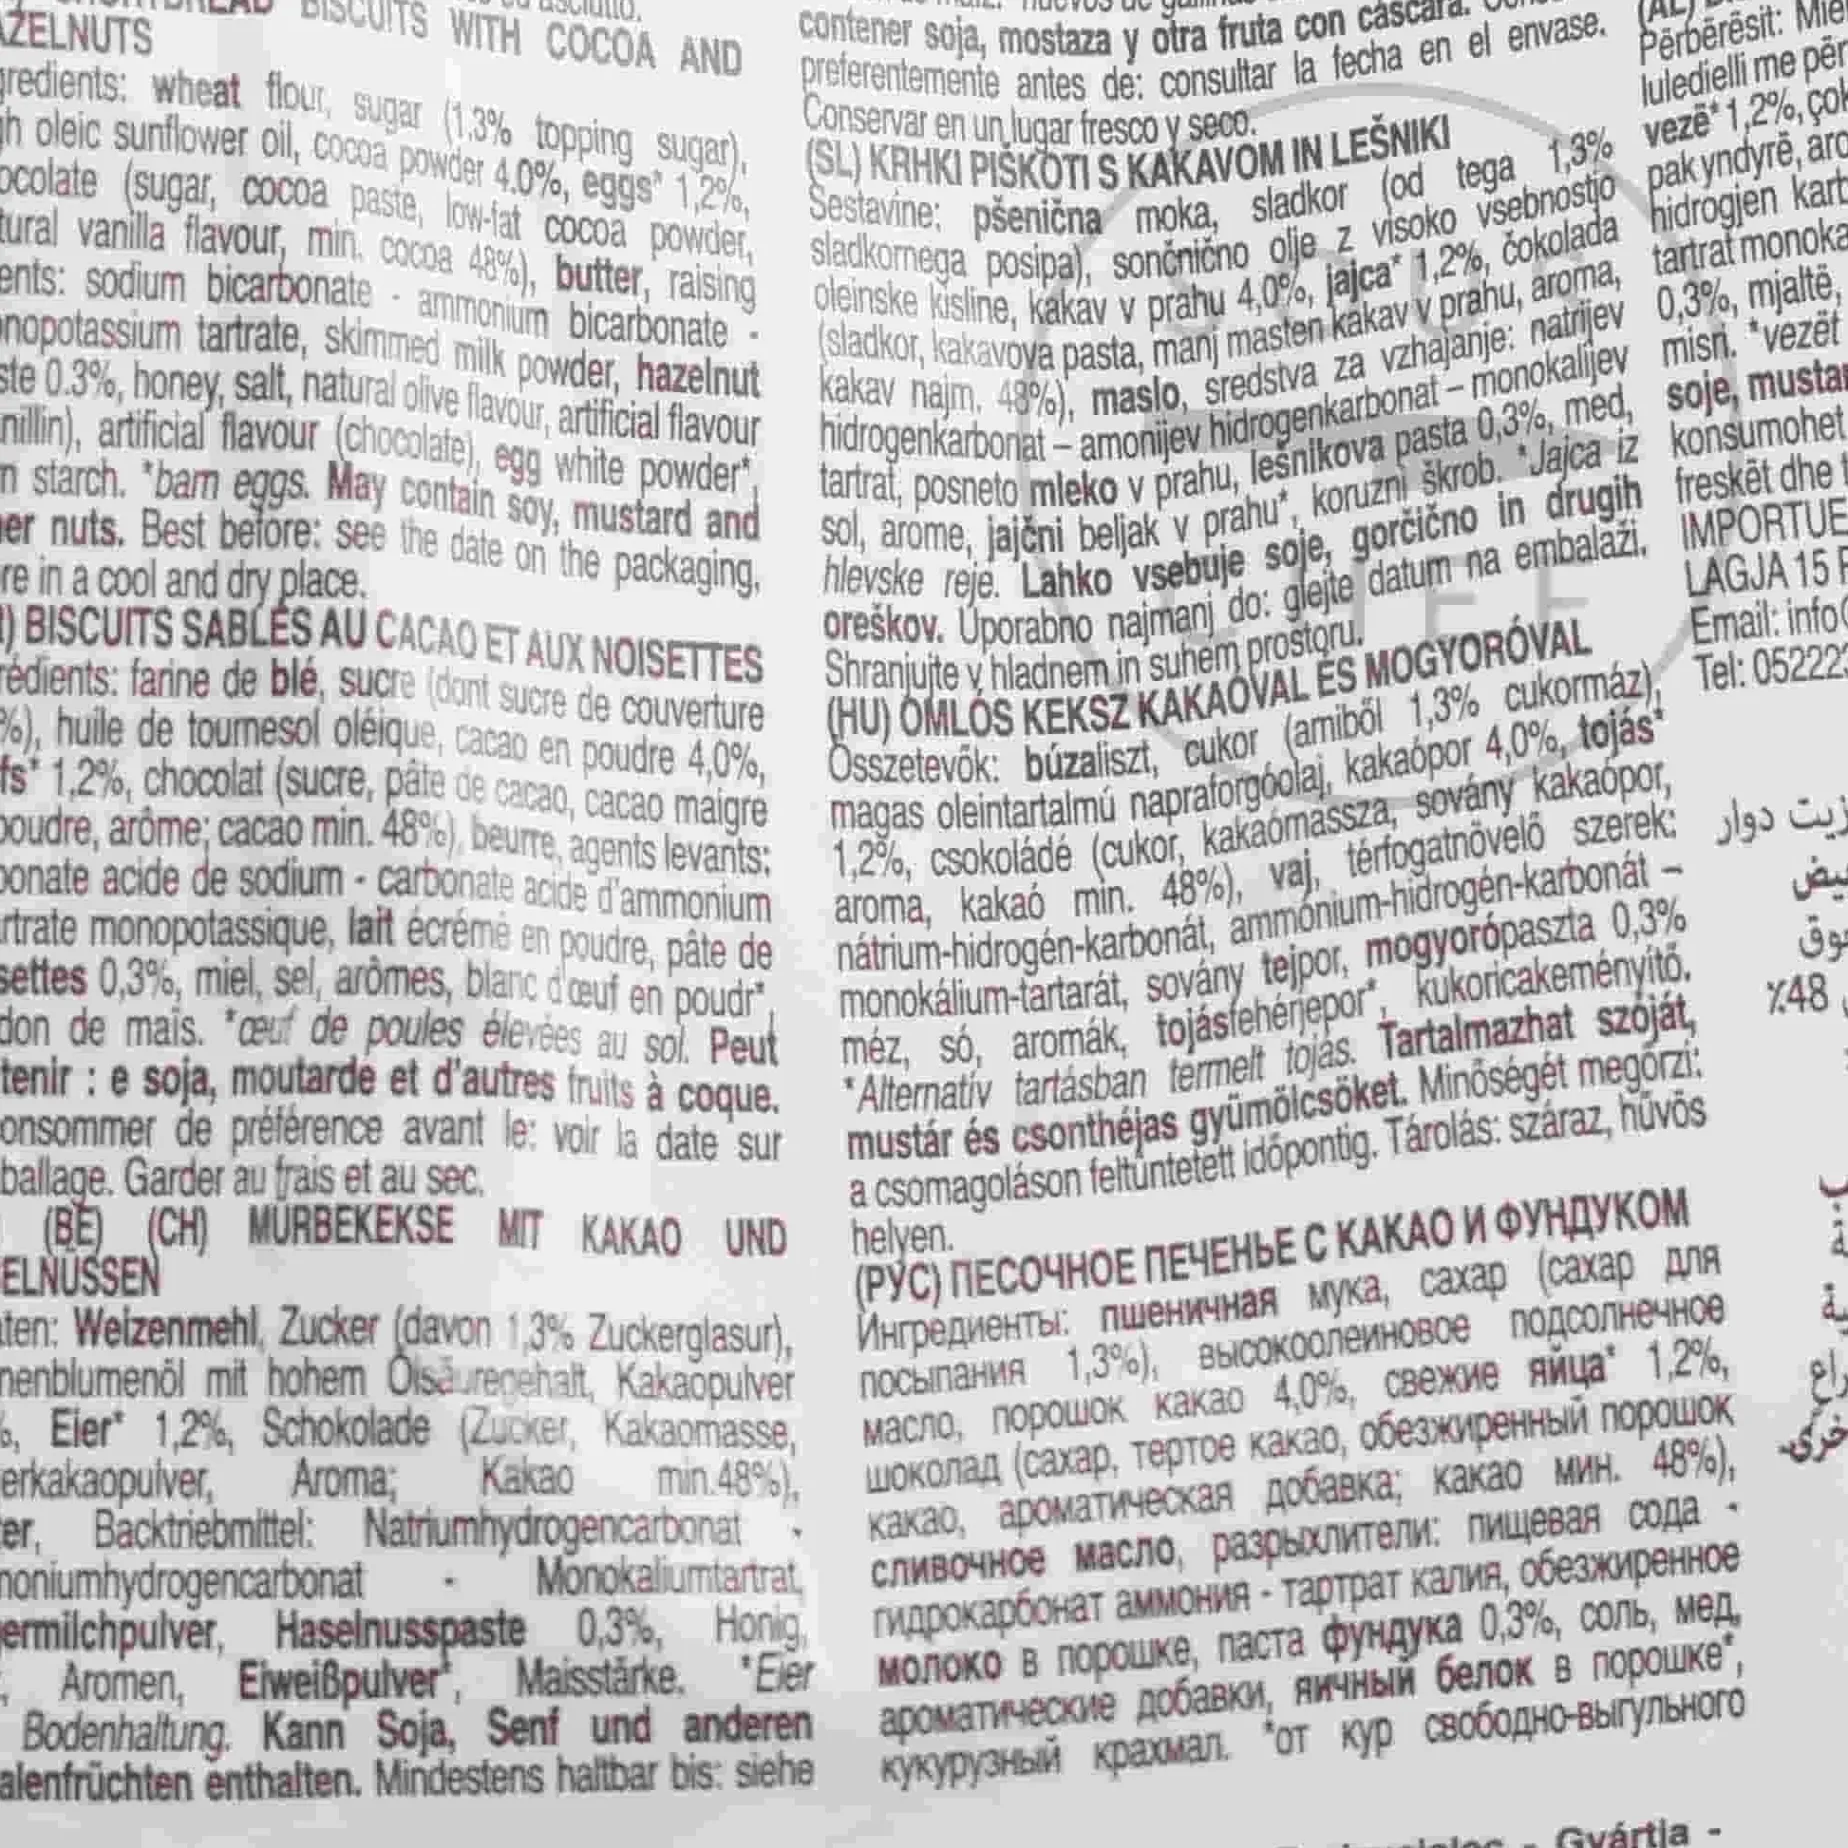 BISCUITS WITH COCOA AND
wheat flour, sugar (1.3% topping sugar),
oleic sunflower oil, cocoa powder 4.0%, eggs* 1,2%,
(sugar, cocoa paste, low-fat cocoa powder,
vanilla flavour, min. cocoa 48%), butter, raising
sodium bicarbonate - ammonium bicarbonate -
tartrate, skimmed milk powder, hazelnut
0.3%, honey, salt, natural olive flavour, artificial flavour
artificial flavour (chocolate), egg white powder*,
starch. *barn eggs. May contain soy, mustard and
nuts. Best before: see the date on the packaging.
in a cool and dry place.
BISCUITS SABLÉS AU CACAO ET AUX NOISETTES
farine de blé, sucre (dont sucre de couverture
huile de tournesol oléique, cacao en poudre 4,0%,
1,2%, chocolat (sucre, pâte de cacao, cacao maigre
poudre, arôme; cacao min. 48%), beurre, agents levants:
acide de sodium - carbonate acide d'ammonium
monopotassique, lait écrémé en poudre, pâte de
0,3%, miel, sel, arômes, blanc d'œuf en poudr*,
de maïs. *œuf de poules élevées au sol. Peut
: e soja, moutarde et d'autres fruits à coque.
de préférence avant le: voir la date sur
Garder au frais et au sec.
(BE) (CH) MÜRBEKEKSE MIT KAKAO UND
Weizenmehl, Zucker (davon 1,3% Zuckerglasur),
mit hohem Ölsäuregehalt, Kakaopulver
Eier* 1,2%, Schokolade (Zucker, Kakaomasse,
Aroma; Kakao min.48%),
Backtriebmittel: Natriumhydrogencarbonat -
- Monokaliumtartrat,
Haselnusspaste 0,3%, Honig,
Aromen, Eiweißpulver*, Maisstärke. *Eier
Bodenhaltung. Kann Soja, Senf und anderen
enthalten. Mindestens haltbar bis: siehe
contener soja, mostaza y otra fruta con cáscara.
preferentemente antes de: consultar la fecha en el envase.
Conservar en un lugar fresco y seco.
(SL) KRHKI PIŠKOTI S KAKAVOM IN LEŠNIKI
Sestavine: pšenična moka, sladkor (od tega 1,3%
sladkornega posipa), sončnično olje z visoko vsebnostjo
oleinske kisline, kakav v prahu 4,0%, jajca* 1,2%, čokolada
(sladkor, kakavova pasta, manj masten kakav v prahu, aroma,
kakav najm. 48%), maslo, sredstva za vzhajanje: natrijev
hidrogenkarbonat – amonijev hidrogenkarbonat – monokalijev
tartrat, posneto mleko v prahu, lešnikova pasta 0,3%, med,
sol, arome, jajčni beljak v prahu*, koruzni škrob. *Jajca iz
hlevske reje. Lahko vsebuje soje, gorčično in drugih
oreškov. Uporabno najmanj do: glejte datum na embalaži.
Shranjujte v hladnem in suhem prostoru.
(HU) OMLÓS KEKSZ KAKAÓVAL ÉS MOGYORÓVAL
Összetevők: búzaliszt, cukor (amiből 1,3% cukormáz),
magas oleintartalmú napraforgóolaj, kakaópor 4,0%, tojás*
1,2%, csokoládé (cukor, kakaómassza, sovány kakaópor,
aroma, kakaó min. 48%), vaj, térfogatnövelő szerek:
nátrium-hidrogén-karbonát, ammónium-hidrogén-karbonát –
monokálium-tartarát, sovány tejpor, mogyorópaszta 0,3%
méz, só, aromák, tojásfehérjepor*, kukoricakeményítő.
*Alternatív tartásban termelt tojás. Tartalmazhat szóját,
mustár és csonthéjas gyümölcsöket. Minőségét megőrzi:
a csomagoláson feltüntetett időpontig. Tárolás: száraz, hűvös
helyen.
(РУС) ПЕСОЧНОЕ ПЕЧЕНЬЕ С КАКАО И ФУНДУКОМ
Ингредиенты: пшеничная мука, сахар (сахар для
посыпания 1,3%), высокоолеиновое подсолнечное
масло, порошок какао 4,0%, свежие яйца* 1,2%,
шоколад (сахар, тертое какао, обезжиренный порошок
какао, ароматическая добавка; какао мин. 48%),
сливочное масло, разрыхлители: пищевая сода -
гидрокарбонат аммония - тартрат калия, обезжиренное
молоко в порошке, паста фундука 0,3%, соль, мед,
ароматические добавки, яичный белок в порошке*,
кукурузный крахмал. *от кур свободно-выгульного
Përbërësit:
luledielli me
vezë* 1,2%,
pak yndyrë,
hidrogjen
tartrat
0,3%, mjaltë,
misri. *vezët
soje,
konsumohet
freskët dhe
LAGJA 15
Email:
Tel:
زيت دوار
٪48
- Gyártja -